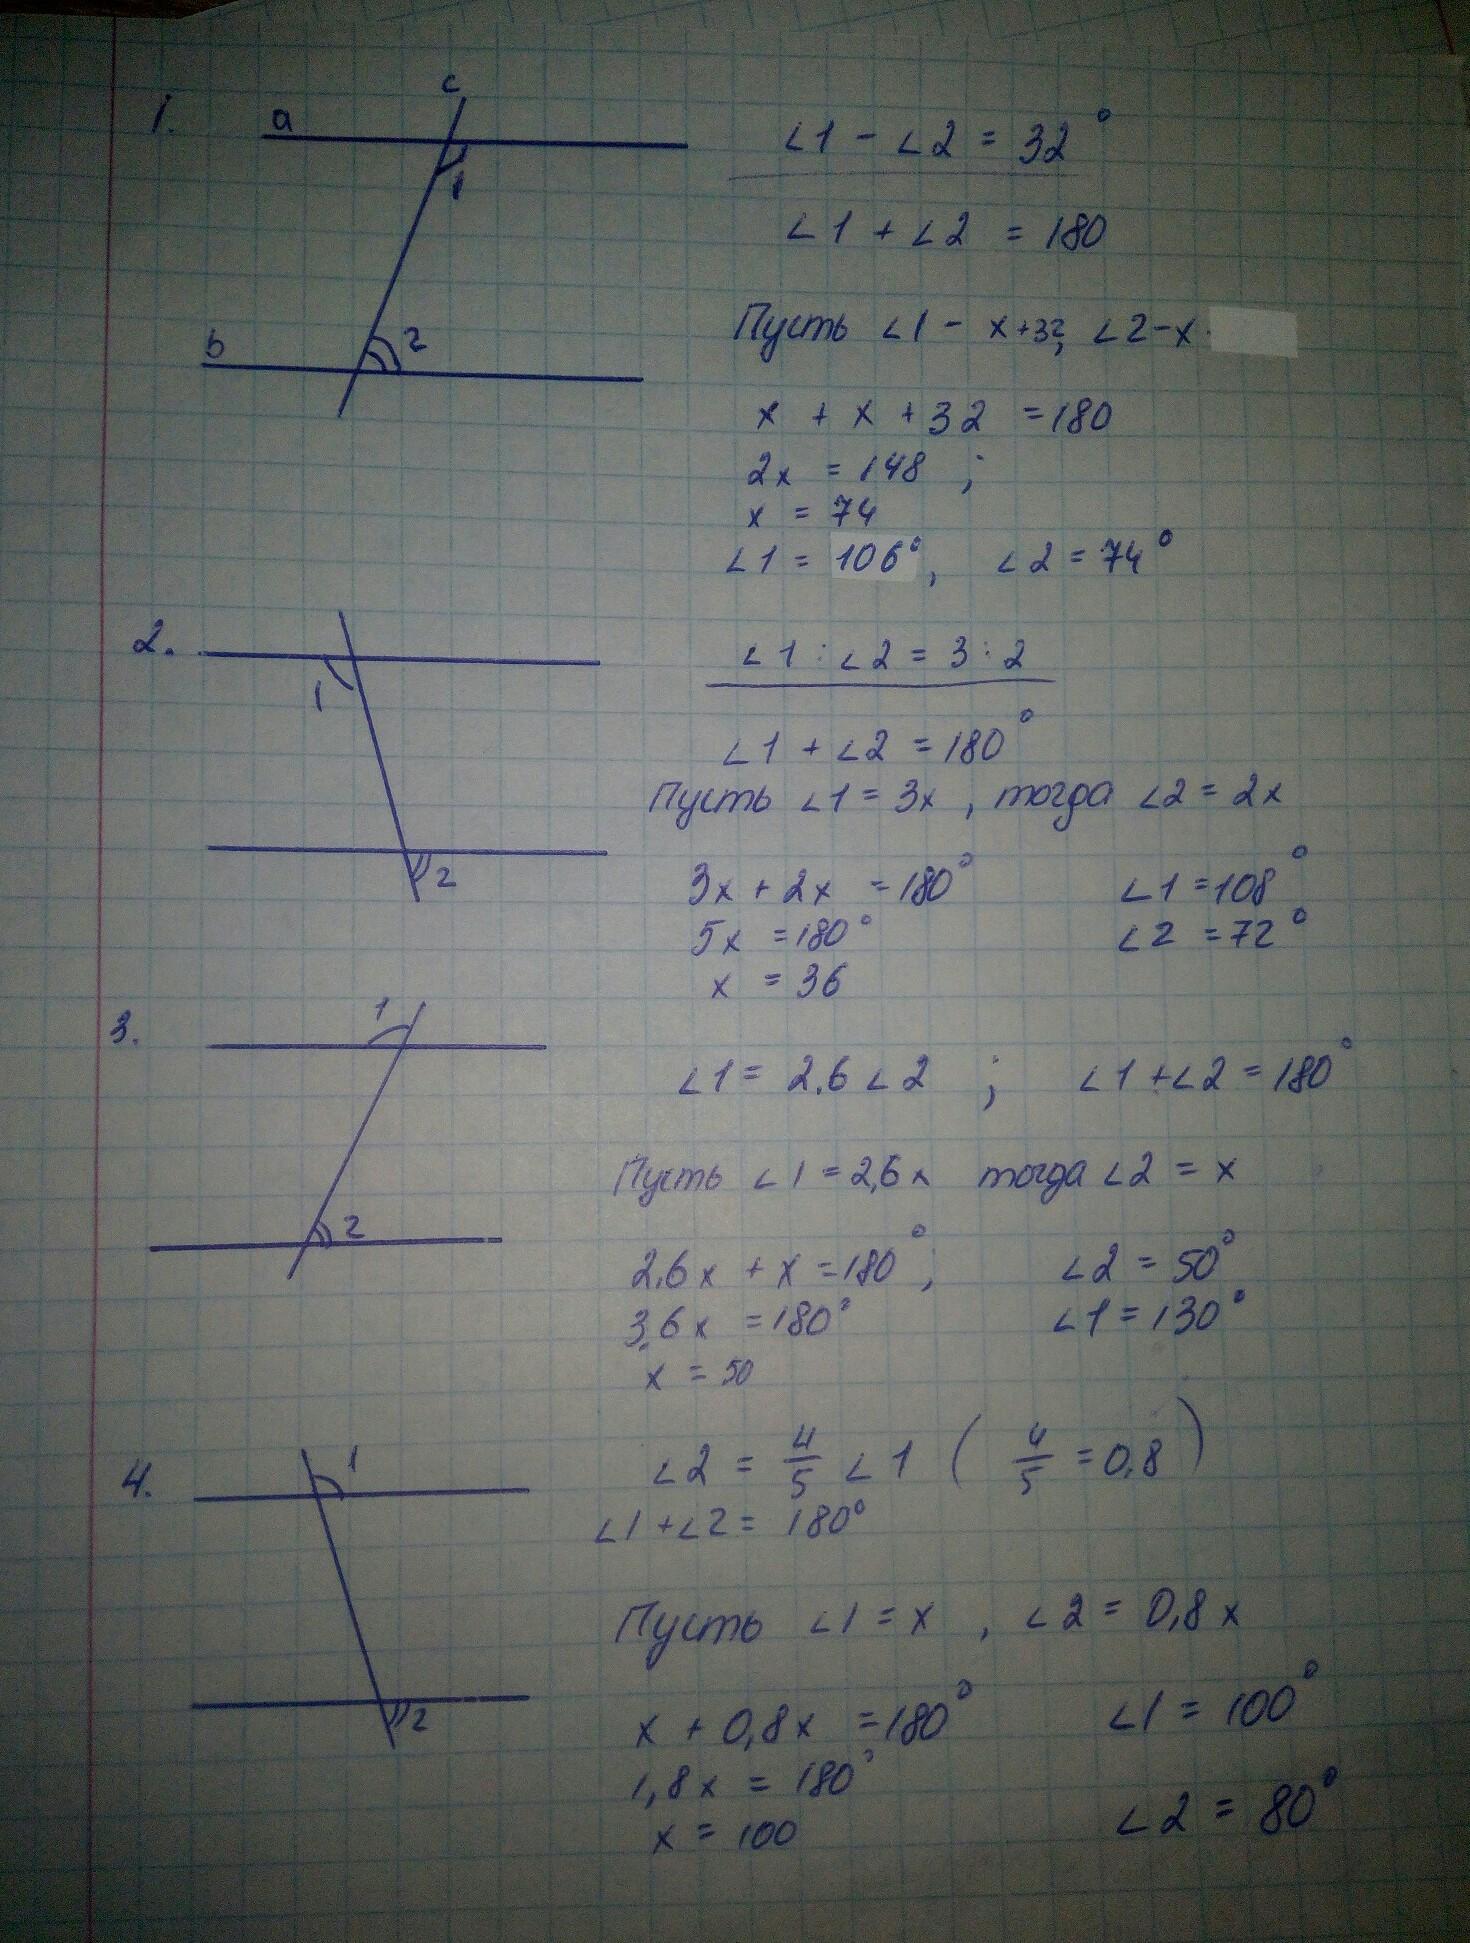 1. a c 1 b 2
∠1 - ∠2 = 32°
∠1 + ∠2 = 180
Пусть ∠1 - x+32, ∠2-x
x + x + 32 = 180
2x = 148 ;
x = 74
∠1 = 106°, ∠2 = 74°
2. 1 2
∠1 : ∠2 = 3 : 2
∠1 + ∠2 = 180°
Пусть ∠1 = 3x , тогда ∠2 = 2x
3x + 2x = 180° ∠1 = 108°
5x = 180° ∠2 = 72°
x = 36
3. 1 2
∠1 = 2,6 ∠2 ; ∠1 + ∠2 = 180°
Пусть ∠1 = 2,6x тогда ∠2 = x
2,6x + x = 180° ; ∠2 = 50°
3,6x = 180° ∠1 = 130°
x = 50
4. 1 2
∠2 = 4/5 ∠1 ( 4/5 = 0,8 )
∠1 + ∠2 = 180°
Пусть ∠1 = x , ∠2 = 0,8x
x + 0,8x = 180° ∠1 = 100°
1,8x = 180°
x = 100 ∠2 = 80°